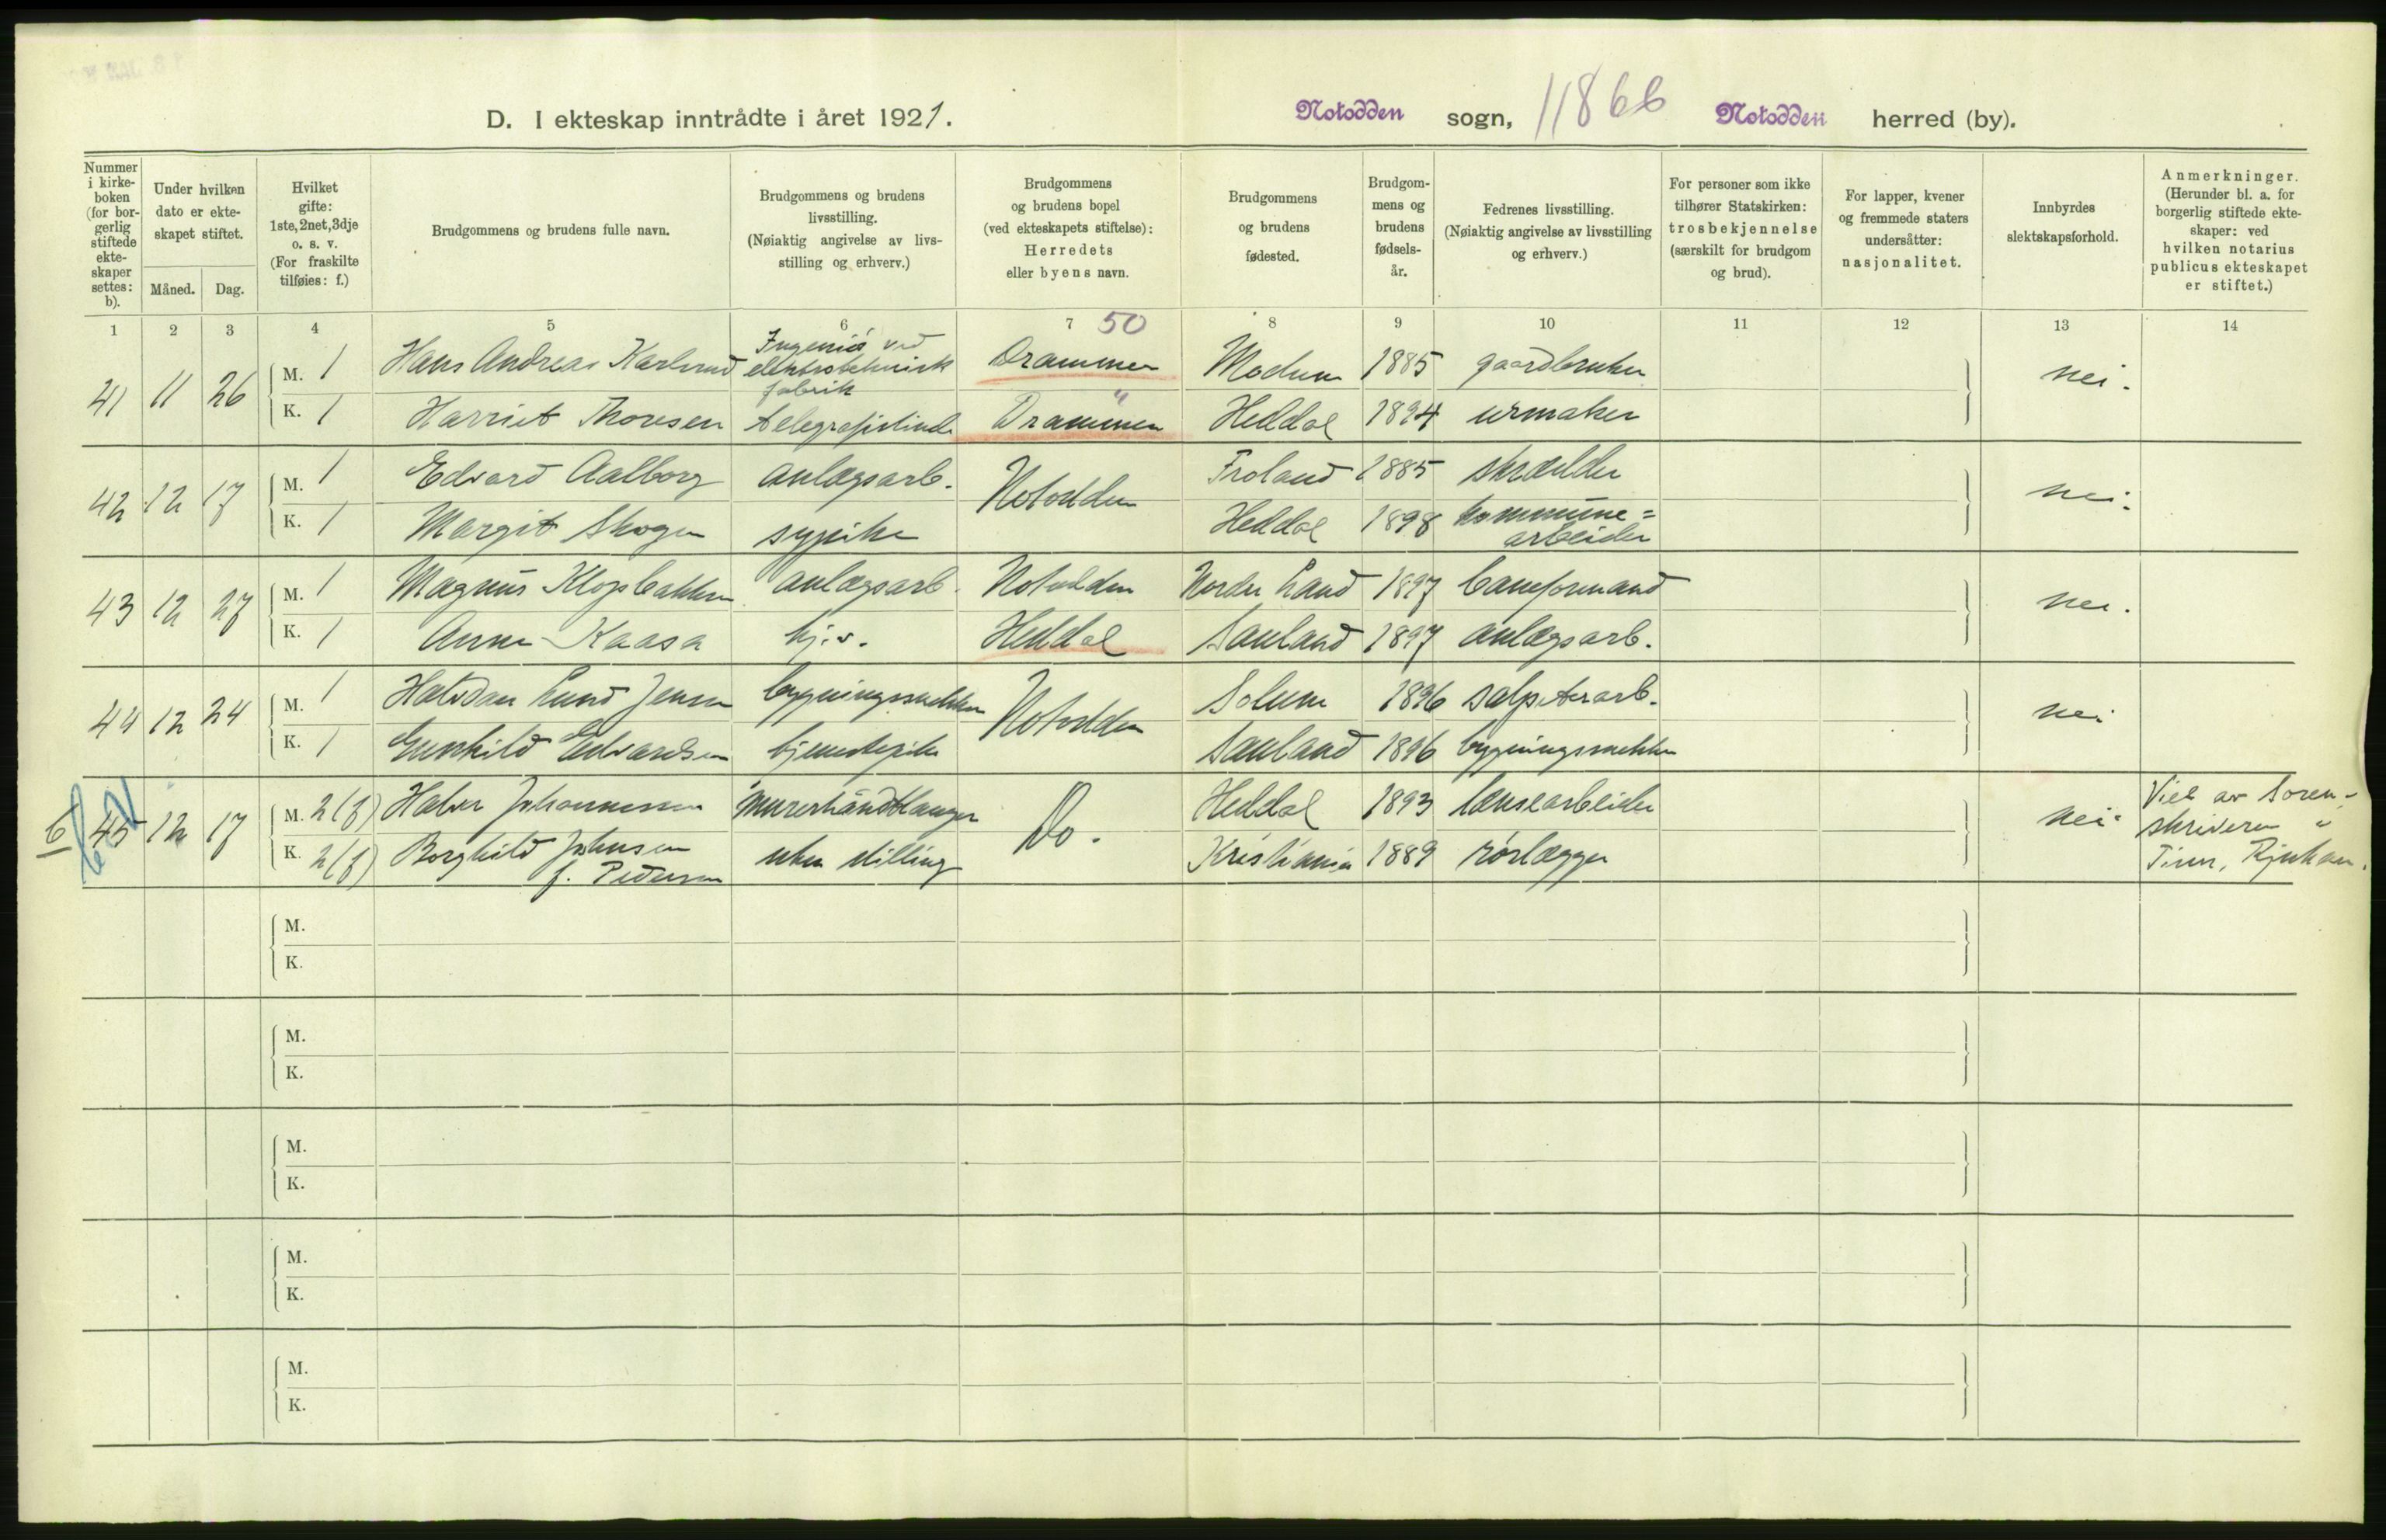 D. I ekteskap inntrådte i året 1921.
Notodden sogn, 11866 Notodden herred (by).
Nummer i kirkeboken (for borgerlig stiftede ekteskaper settes: b).
Under hvilken dato er ekteskapet stiftet.
Måned. Dag.
Hvilket gifte: 1ste, 2net, 3dje o. s. v. (For fraskilte tilføies: f.)
Brudgommens og brudens fulle navn.
Brudgommens og brudens livsstilling. (Nøiaktig angivelse av livsstilling og erhverv.)
Brudgommens og brudens bopel (ved ekteskapets stiftelse): Herredets eller byens navn.
Brudgommens og brudens fødested.
Brudgommens og brudens fødselsår.
Fedrenes livsstilling. (Nøiaktig angivelse av livsstilling og erhverv.)
For personer som ikke tilhører Statskirken: trosbekjennelse (særskilt for brudgom og brud).
For lapper, kvener og fremmede staters undersåtter: nasjonalitet.
Innbyrdes slektskapsforhold.
Anmerkninger. (Herunder bl. a. for borgerlig stiftede ekteskaper: ved hvilken notarius publicus ekteskapet er stiftet.)
1 2 3 4 5 6 7 50 8 9 10 11 12 13 14
41 11 26 M. 1 Hans Andreas Karlsrud Ingeniør ved elektroteknisk fabrik Drammen Modum 1885 gaardbruker nei.
K. 1 Harriet Thoresen telegrafistinde Drammen Heddal 1894 urmaker
42 12 17 M. 1 Edvard Aalborg anlægsarb. Notodden Froland 1885 skrædder nei.
K. 1 Margit Skogen sypike Heddal 1898 kommune=
arbeider
43 12 27 M. 1 Magnus Klopbakken anlægsarb. Notodden Nordre Land 1897 baneformand nei.
K. 1 Anne Kaasa hj.v. Heddal Sauland 1897 anlægsarb.
44 12 24 M. 1 Halvdan Lund Jensen bygningssnekker Notodden Solum 1896 salpeterarb. nei
K. 1 Gunhild Edvardsen tjenestepike Sauland 1896 bygningssnekker
b 45 12 17 M. 2(f) Halvor Johannessen murerhåndtlanger Do. Heddal 1893 lænsearbeider nei. Viet av Soren-
skriveren i
Tinn, Rjukan.
K. 2(f) Borghild Johnsen
f. Pedersen uten stilling Kristiania 1889 rørlægger
M.
K.
M.
K.
M.
K.
M.
K.
M.
K.